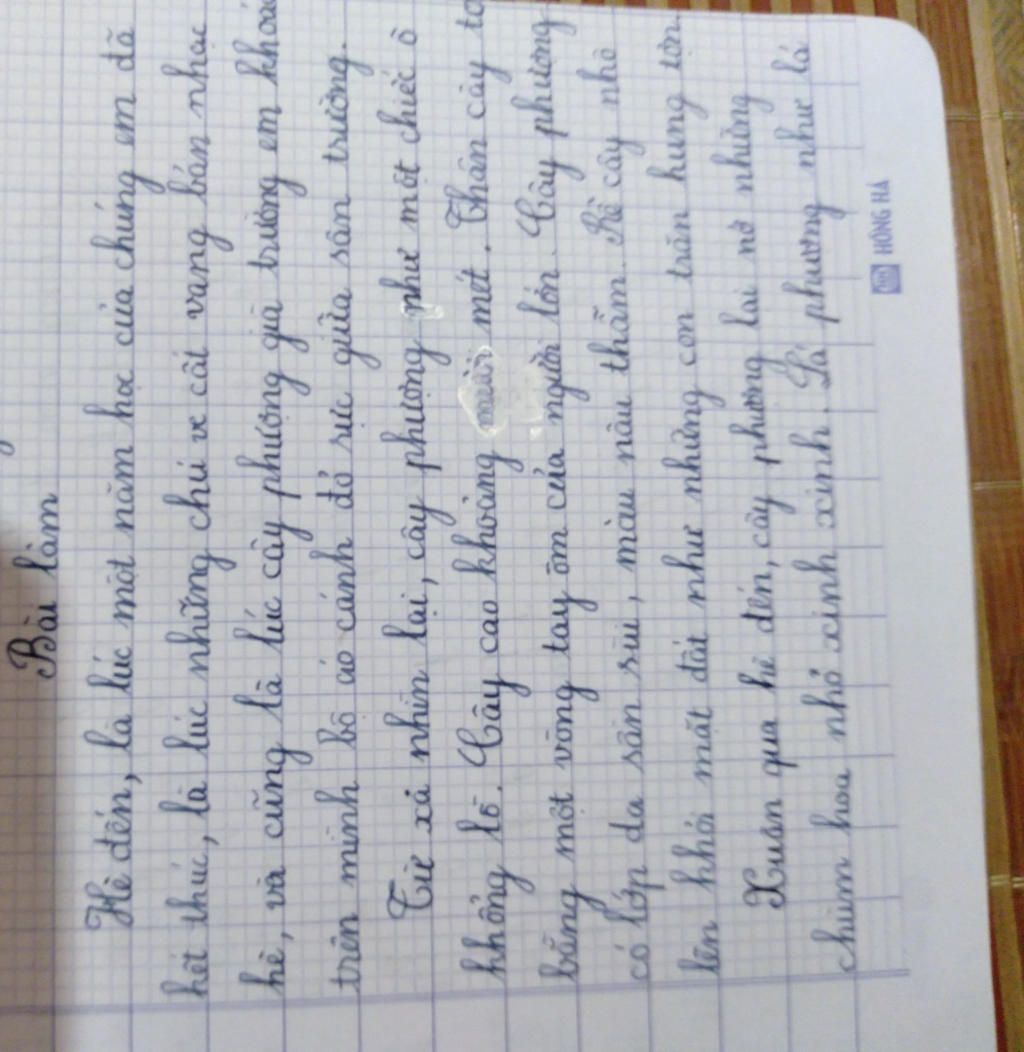 Bài làm
Hè đến, là lúc một năm học của chúng em đã
hết thúc, là lúc những chú ve cất vang bản nhạc
hè, và cũng là lúc cây phượng già trường em khoác
trên mình bộ áo cánh đỏ rực giữa sân trường.
Từ xa nhìn lại, cây phượng như một chiếc ô
khổng lồ. Cây cao khoảng mười mét. Thân cây to
bằng một vòng tay ôm của người lớn. Cây phượng
có lớp da sần sùi, màu nâu thẫm. Rễ cây nhô
lên khỏi mặt đất như những con trăn hung tợn.
Xuân qua hè đến, cây phượng lại nở những
chùm hoa nhỏ xinh xinh. Lá phượng như lá
HỒNG HÀ